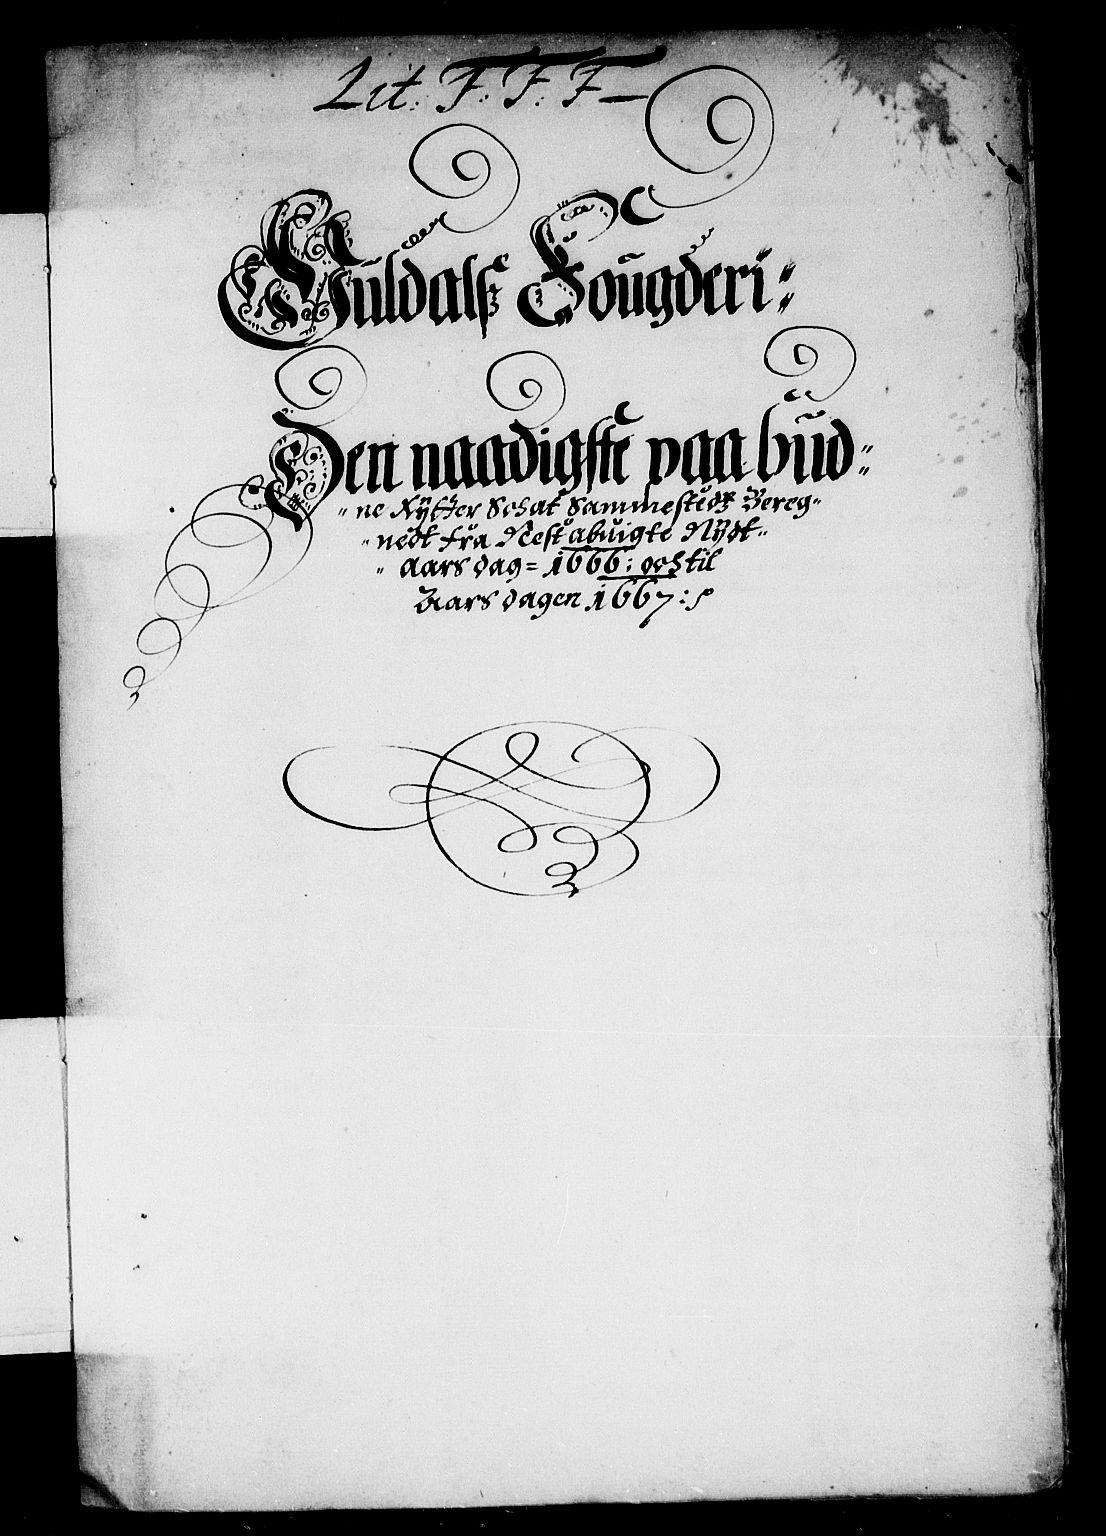 Lit: F: F: F
Guldalß Fougderi
Den naadigste paa bud
ne Rÿtter Schat Sammestedß Bereg
nedt fra Nest abuigte Nÿdt
aars dag 1666: och til
Aars dagen 1667: